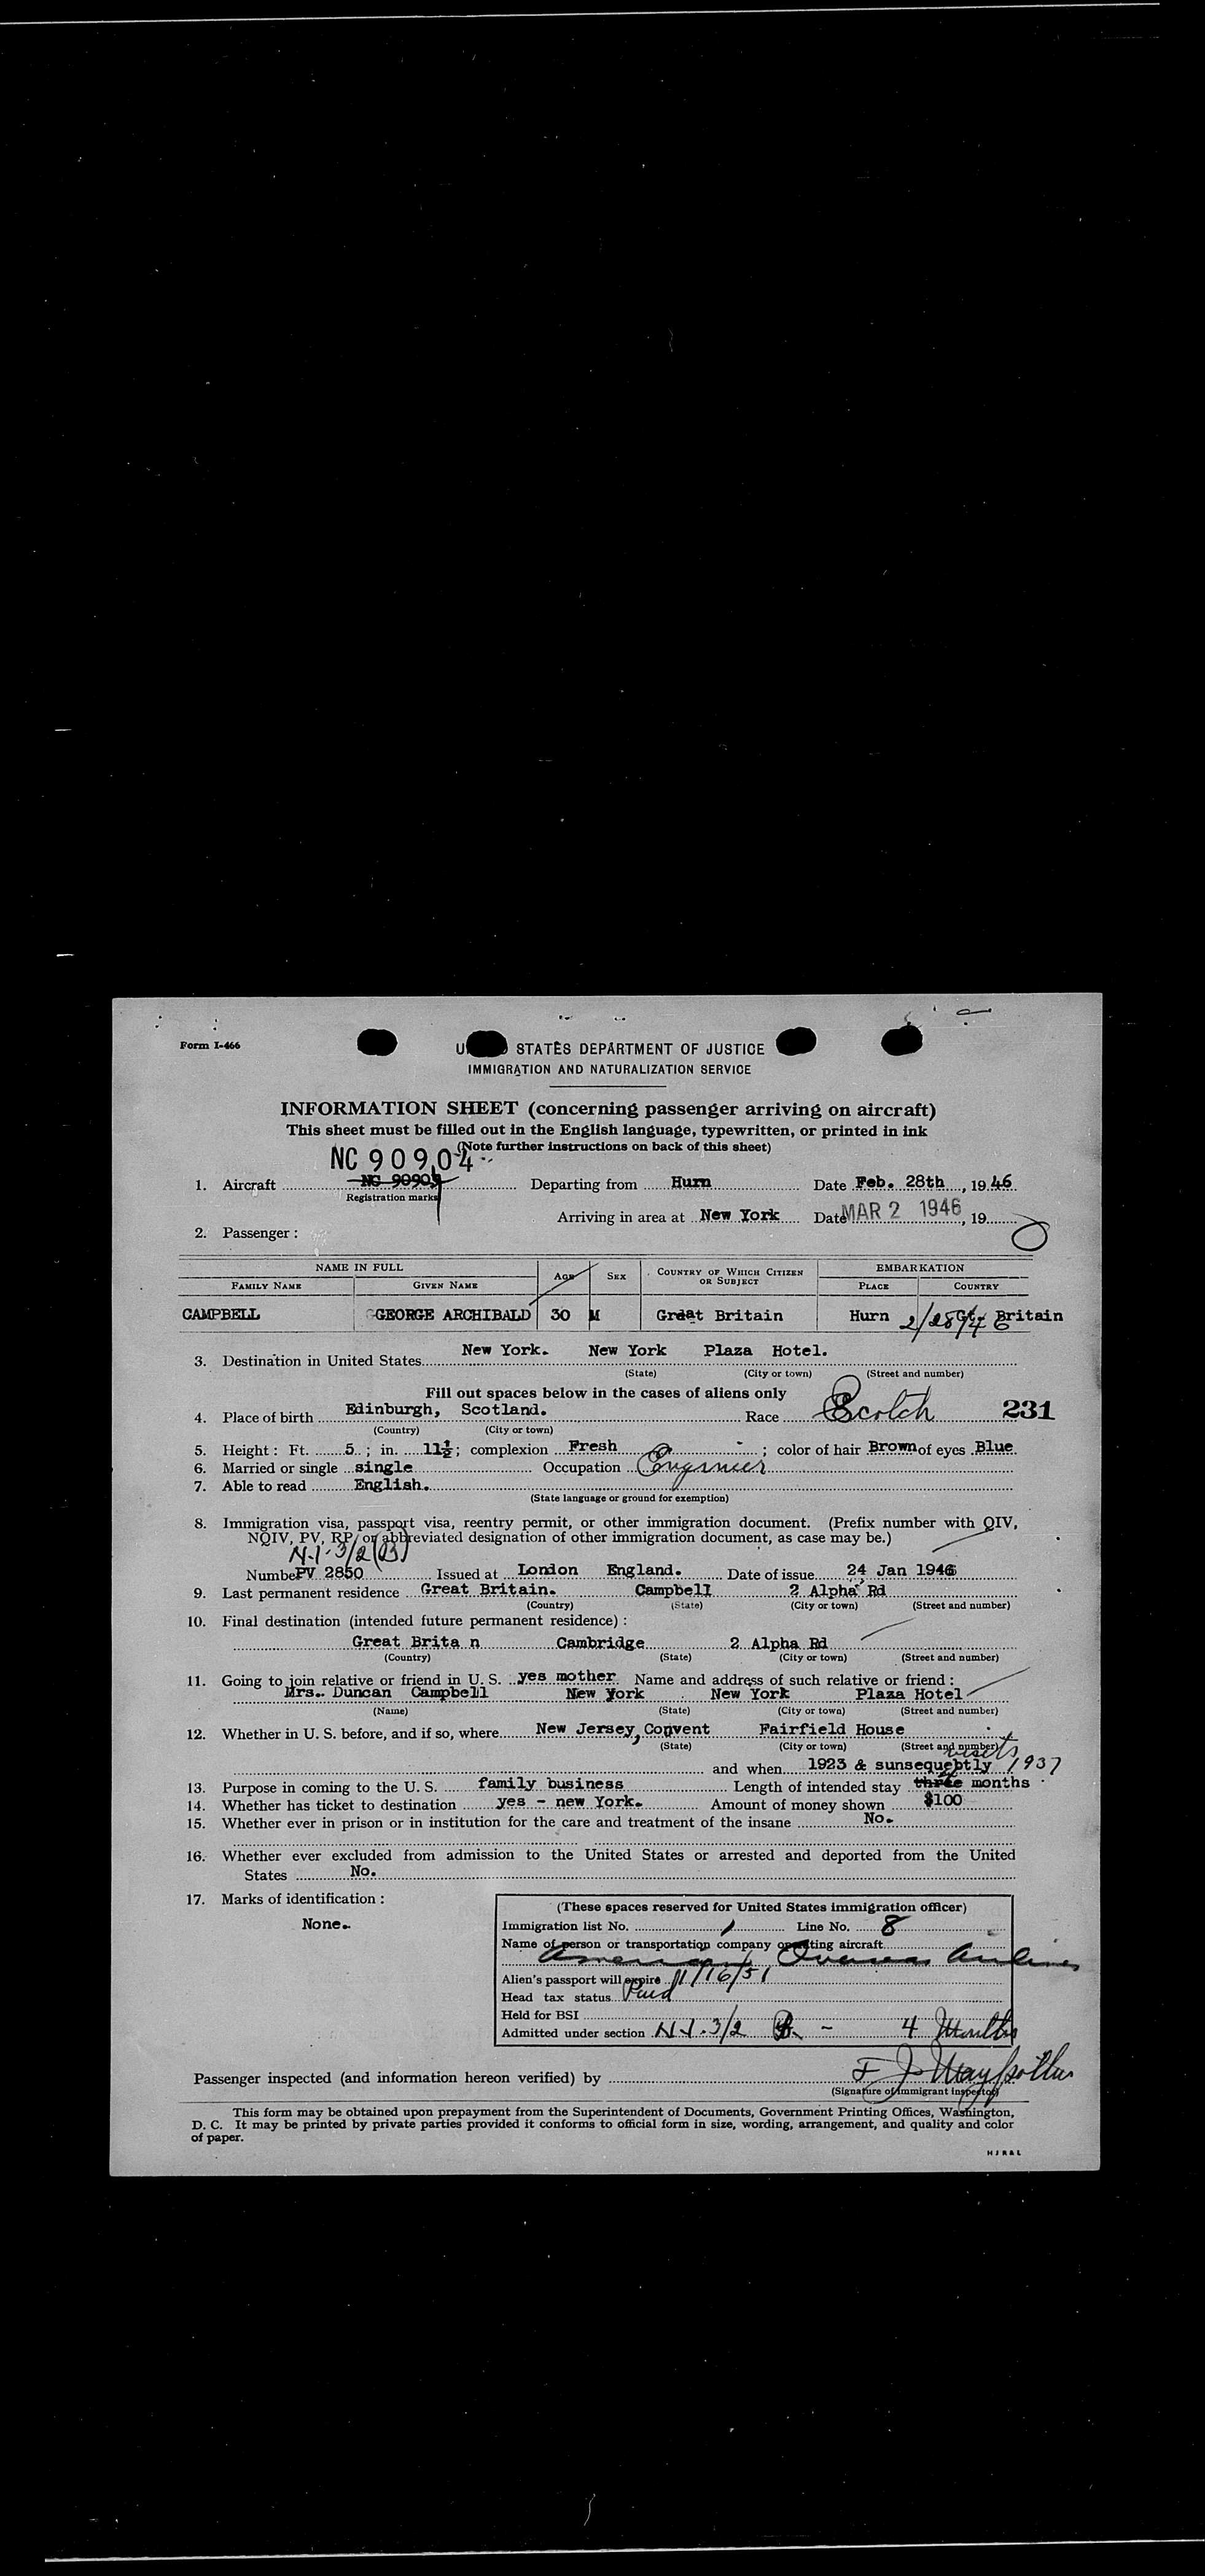 Form I-466
STATES DEPARTMENT OF JUSTICE
IMMIGRATION AND NATURALIZATION SERVICE
INFORMATION SHEET (concerning passenger arriving on aircraft)
This sheet must be filled out in the English language, typewritten, or printed in ink
(Note further instructions on back of this sheet)
NC 90904
1. Aircraft NC 90909 Departing from Hurn Date Feb. 28th, 1946
Registration marks
Arriving in area at New York Date MAR 2 1946, 19
2. Passenger:
NAME IN FULL AGE SEX COUNTRY OF WHICH CITIZEN OR SUBJECT EMBARKATION
FAMILY NAME GIVEN NAME PLACE COUNTRY
CAMPBELL GEORGE ARCHIBALD 30 M Great Britain Hurn 2/28/46 Gt. Britain
3. Destination in United States New York. New York Plaza Hotel.
(State) (City or town) (Street and number)
Fill out spaces below in the cases of aliens only
4. Place of birth Edinburgh, Scotland. Race Scotch 231
(Country) (City or town)
5. Height: Ft. 5; in. 11½; complexion Fresh; color of hair Brown of eyes Blue
6. Married or single single Occupation Engineer
7. Able to read English.
(State language or ground for exemption)
8. Immigration visa, passport visa, reentry permit, or other immigration document. (Prefix number with QIV,
NQIV, PV, RP, or abbreviated designation of other immigration document, as case may be.)
N.I. 3/2 (B)
Number PV 2850 Issued at London England. Date of issue 24 Jan 1946
9. Last permanent residence Great Britain. Campbell 2 Alpha Rd
(Country) (State) (City or town) (Street and number)
10. Final destination (intended future permanent residence):
Great Brita n Cambridge 2 Alpha Rd
(Country) (State) (City or town) (Street and number)
11. Going to join relative or friend in U. S. yes mother Name and address of such relative or friend:
Mrs. Duncan Campbell New York New York Plaza Hotel
(Name) (State) (City or town) (Street and number)
12. Whether in U. S. before, and if so, where New Jersey, Convent Fairfield House
(State) (City or town) (Street and number)
visits
and when 1923 & sunsequebtly 1937
13. Purpose in coming to the U. S. family business Length of intended stay three months
14. Whether has ticket to destination yes - new York. Amount of money shown $100
15. Whether ever in prison or in institution for the care and treatment of the insane No.
16. Whether ever excluded from admission to the United States or arrested and deported from the United
States No.
17. Marks of identification:
None.
(These spaces reserved for United States immigration officer)
Immigration list No. 1 Line No. 8
Name of person or transportation company operating aircraft
American Overseas Airlines
Alien's passport will expire 11/16/51
Head tax status Paid
Held for BSI
Admitted under section N.I. 3/2 B - 4 Months
Passenger inspected (and information hereon verified) by F J
(Signature of Immigrant Inspector)
This form may be obtained upon prepayment from the Superintendent of Documents, Government Printing Offices, Washington,
D. C. It may be printed by private parties provided it conforms to official form in size, wording, arrangement, and quality and color
of paper.
HJR&L